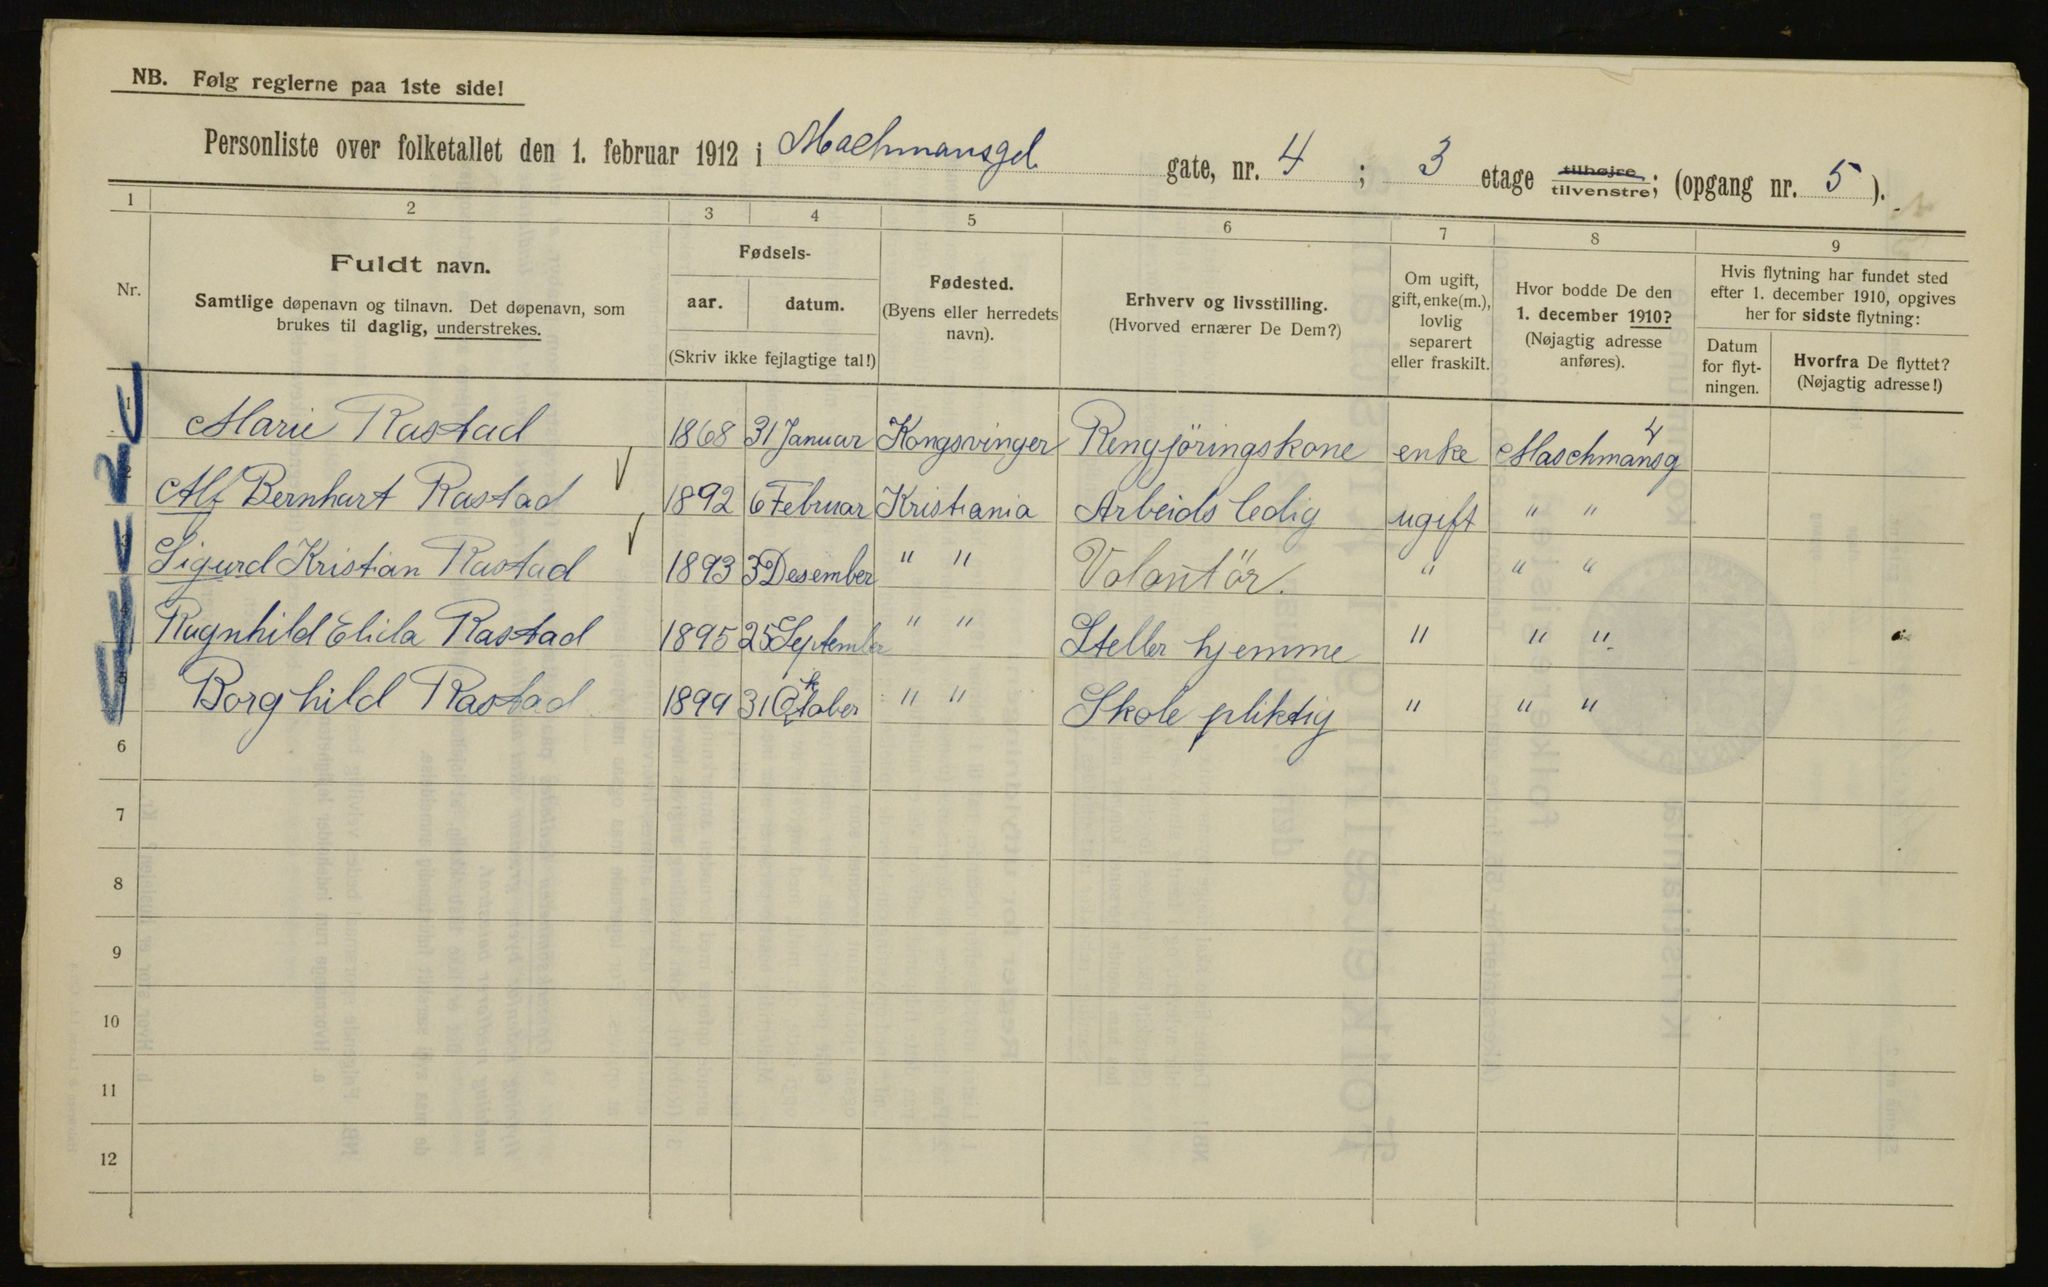 NB. Følg reglerne paa 1ste side!
Personliste over folketallet den 1. februar 1912 i Machmansgd. gate, nr. 4 ; 3 etage tilhøjre tilvenstre; (opgang nr. 5 ).
1 2 3 4 5 6 7 8 9
Nr.
Fuldt navn.
Samtlige døpenavn og tilnavn. Det døpenavn, som
brukes til daglig, understrekes.
Fødsels-
aar. datum.
(Skriv ikke fejlagtige tal!)
Fødested.
(Byens eller herredets
navn).
Erhverv og livsstilling.
(Hvorved ernærer De Dem?)
Om ugift,
gift, enke(m.),
lovlig
separert
eller fraskilt.
Hvor bodde De den
1. december 1910?
(Nøjagtig adresse
anføres).
Hvis flytning har fundet sted
efter 1. december 1910, opgives
her for sidste flytning:
Datum
for flyt-
ningen.
Hvorfra De flyttet?
(Nøjagtig adresse!)
1 Marie Rastad 1868 31 Januar Kongsvinger Rengjöringskone enke Maschmansg 4
2 Alf Bernhart Rastad 1892 6 Februar Kristiania Arbeids ledig ugift " "
3 Sigurd Kristian Rastad 1893 3 Desember " " Volontör. " " "
4 Ragnhild Elida Rastad 1895 25 September " " Steller hjemme " " "
5 Borghild Rastad 1899 31 Oktober " " Skole pliktig " " "
6
7
8
9
10
11
12